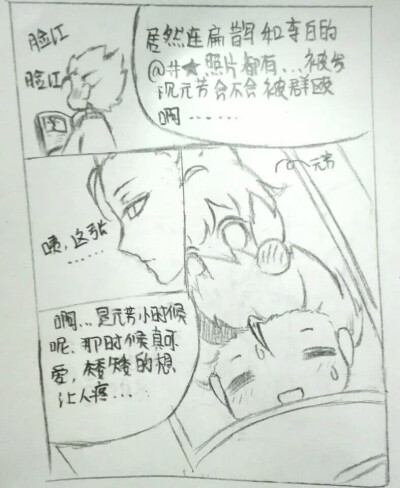 脸红
脸红
居然连扁鹊和李白的
@#★照片都有...被发
现元芳会不会被群殴
啊......
元芳
咦,这张
......
啊...是元芳小时候
呢.那时候真可
爱,矮矮的想
让人疼...